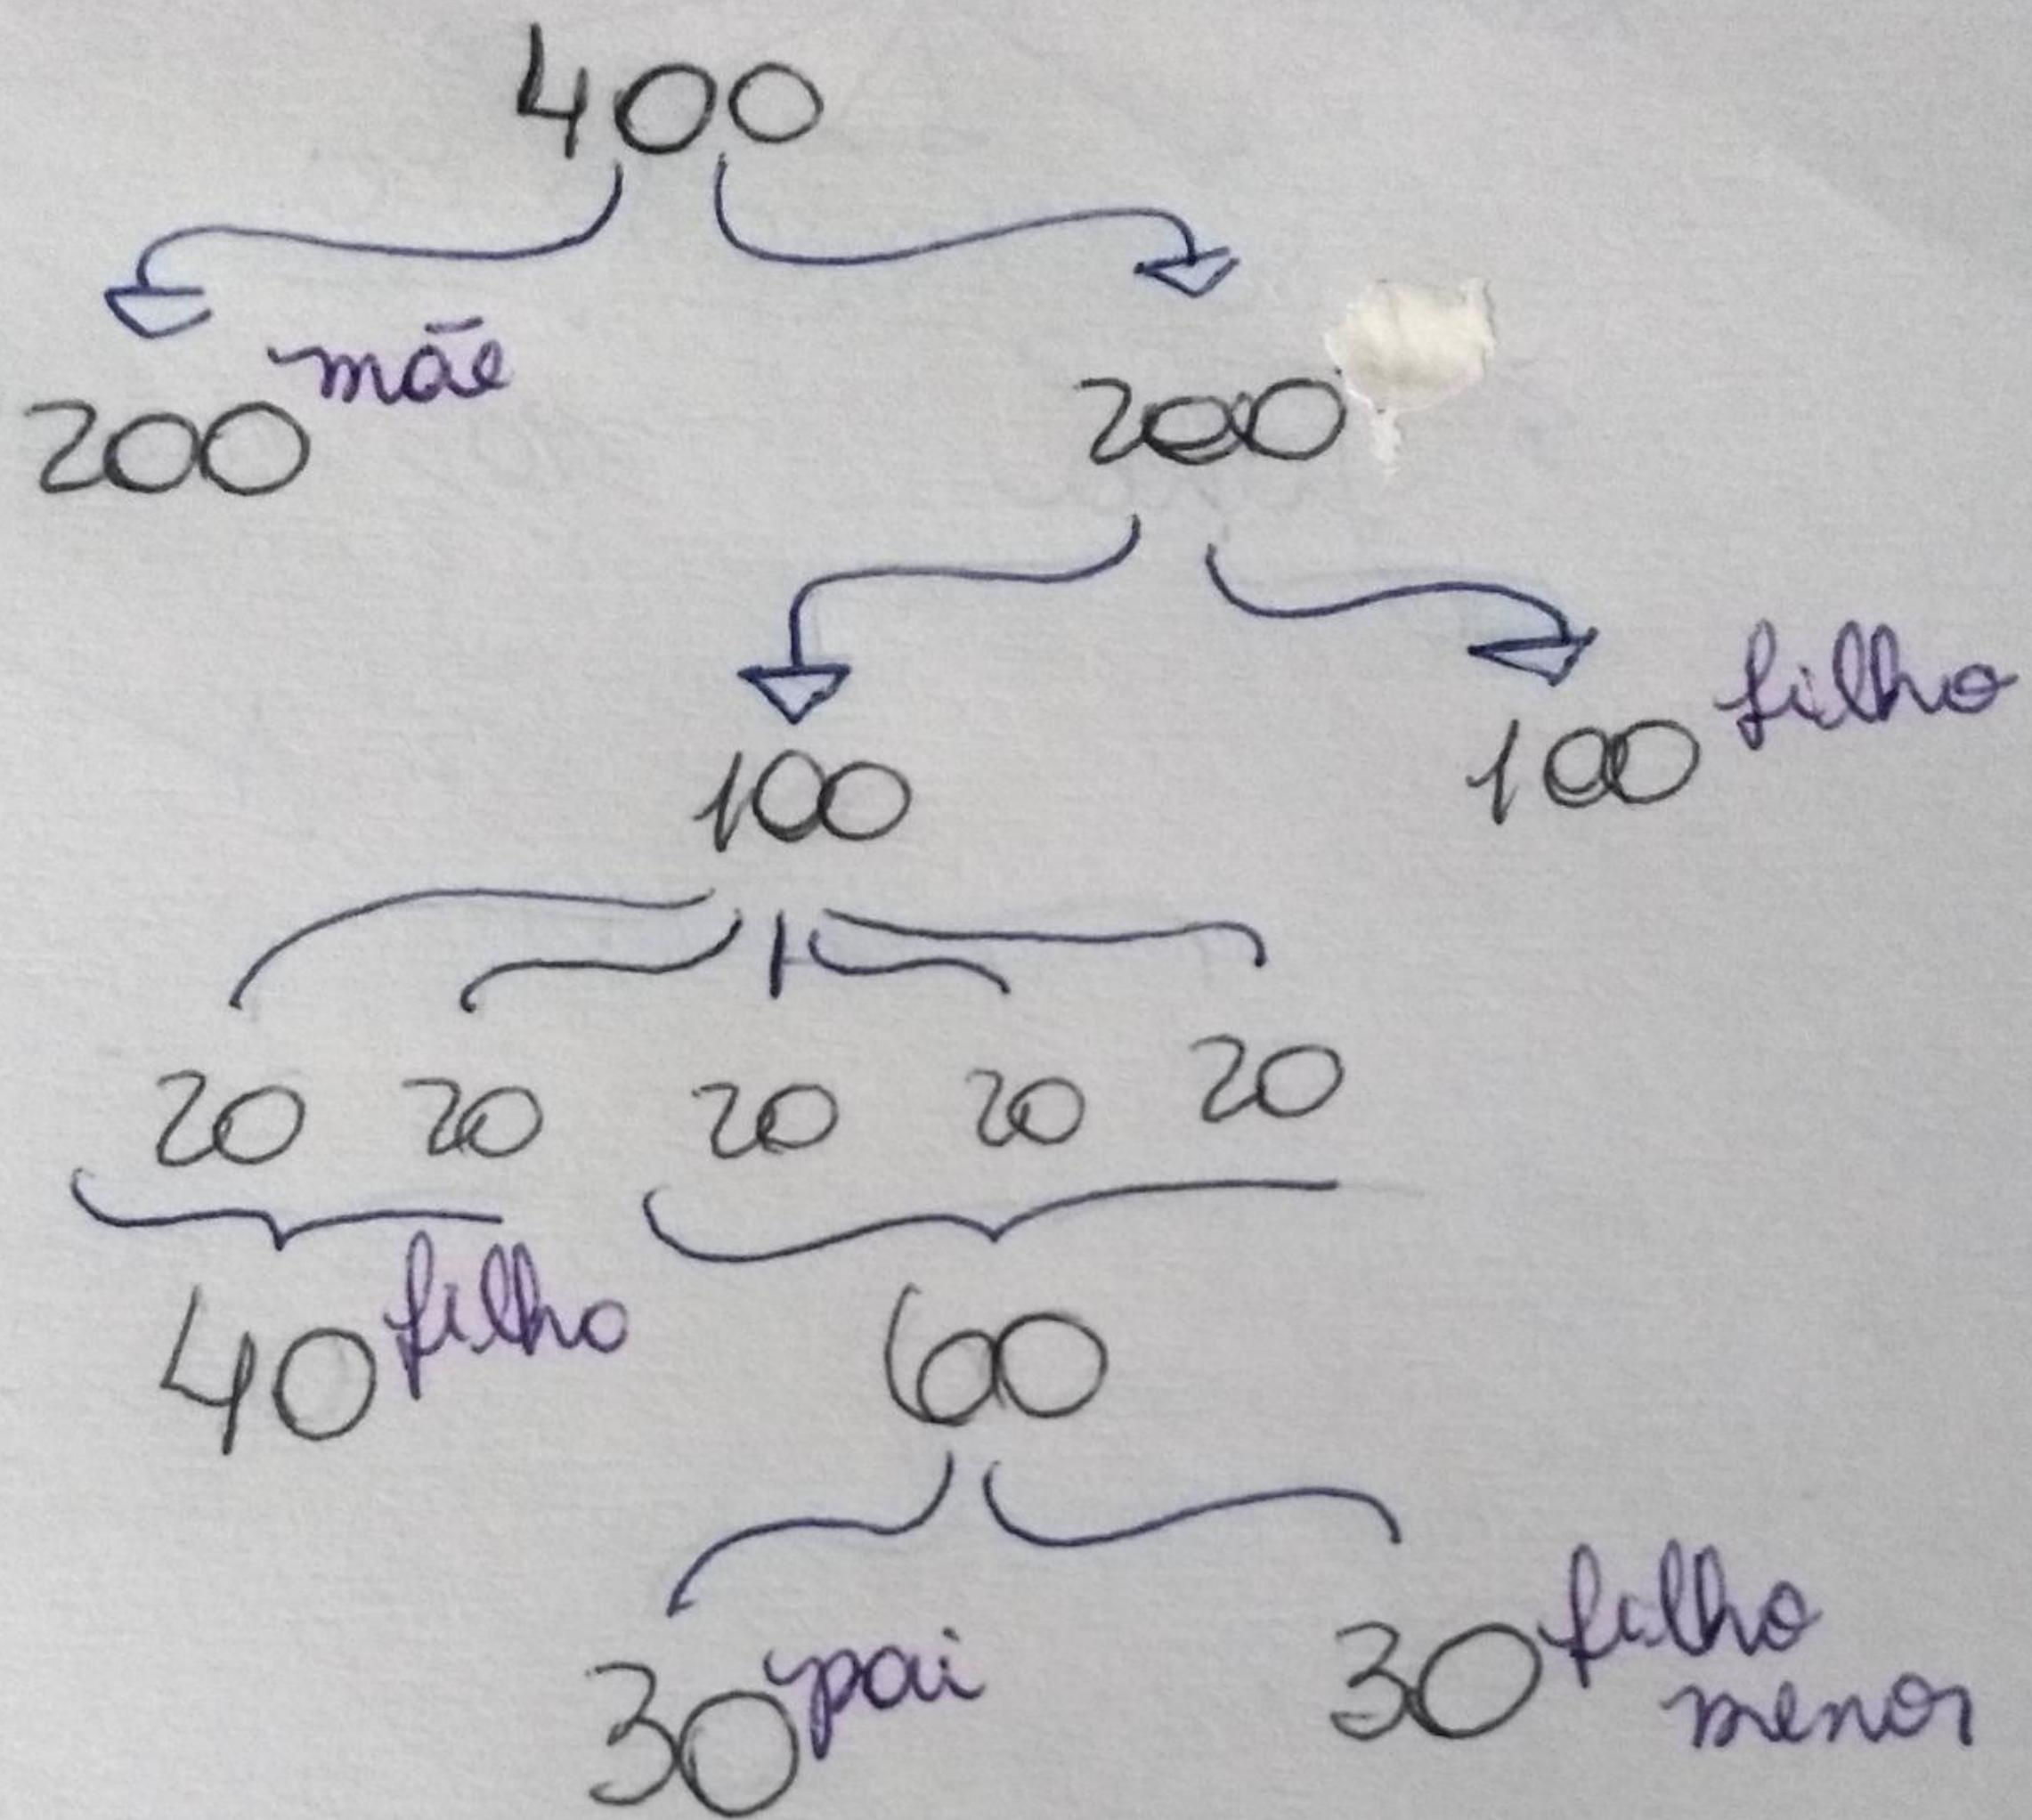 400
200 mãe
200
100
100 filho
20 20 20 20 20
40 filho
60
30 pai
30 filho
menor